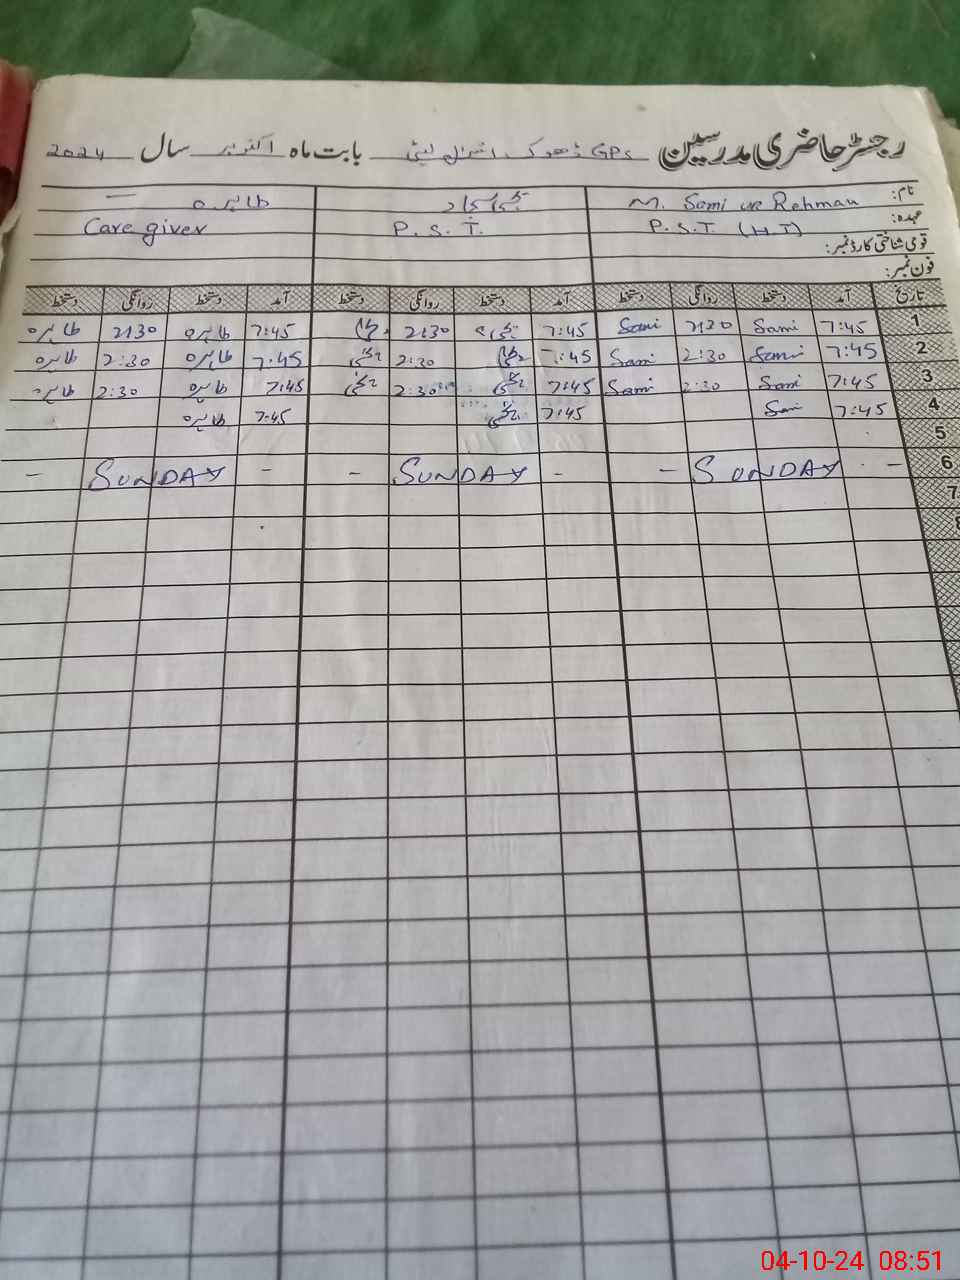 رجسٹر حاضری مدرسین GPS ڈھوک بابت ماہ اکتوبر سال 2024
نام: M. Sami ur Rehman طاہرہ
عہدہ: P.S.T (H.T) P.S.T. Care giver
قومی شناختی کارڈ نمبر:
فون نمبر:
تاریخ آمد دستخط روانگی دستخط آمد دستخط روانگی دستخط آمد دستخط روانگی دستخط
1 7:45 Sami 2:30 Sami 7:45 2:30 7:45 طاہرہ 2:30 طاہرہ
2 7:45 Sami 2:30 Sami 7:45 2:30 7:45 طاہرہ 2:30 طاہرہ
3 7:45 Sami 2:30 Sami 7:45 2:30 7:45 طاہرہ 2:30 طاہرہ
4 7:45 Sami 7:45 7:45 طاہرہ
5
6 - SUNDAY - - SUNDAY - - SUNDAY -
7
8
04-10-24 08:51